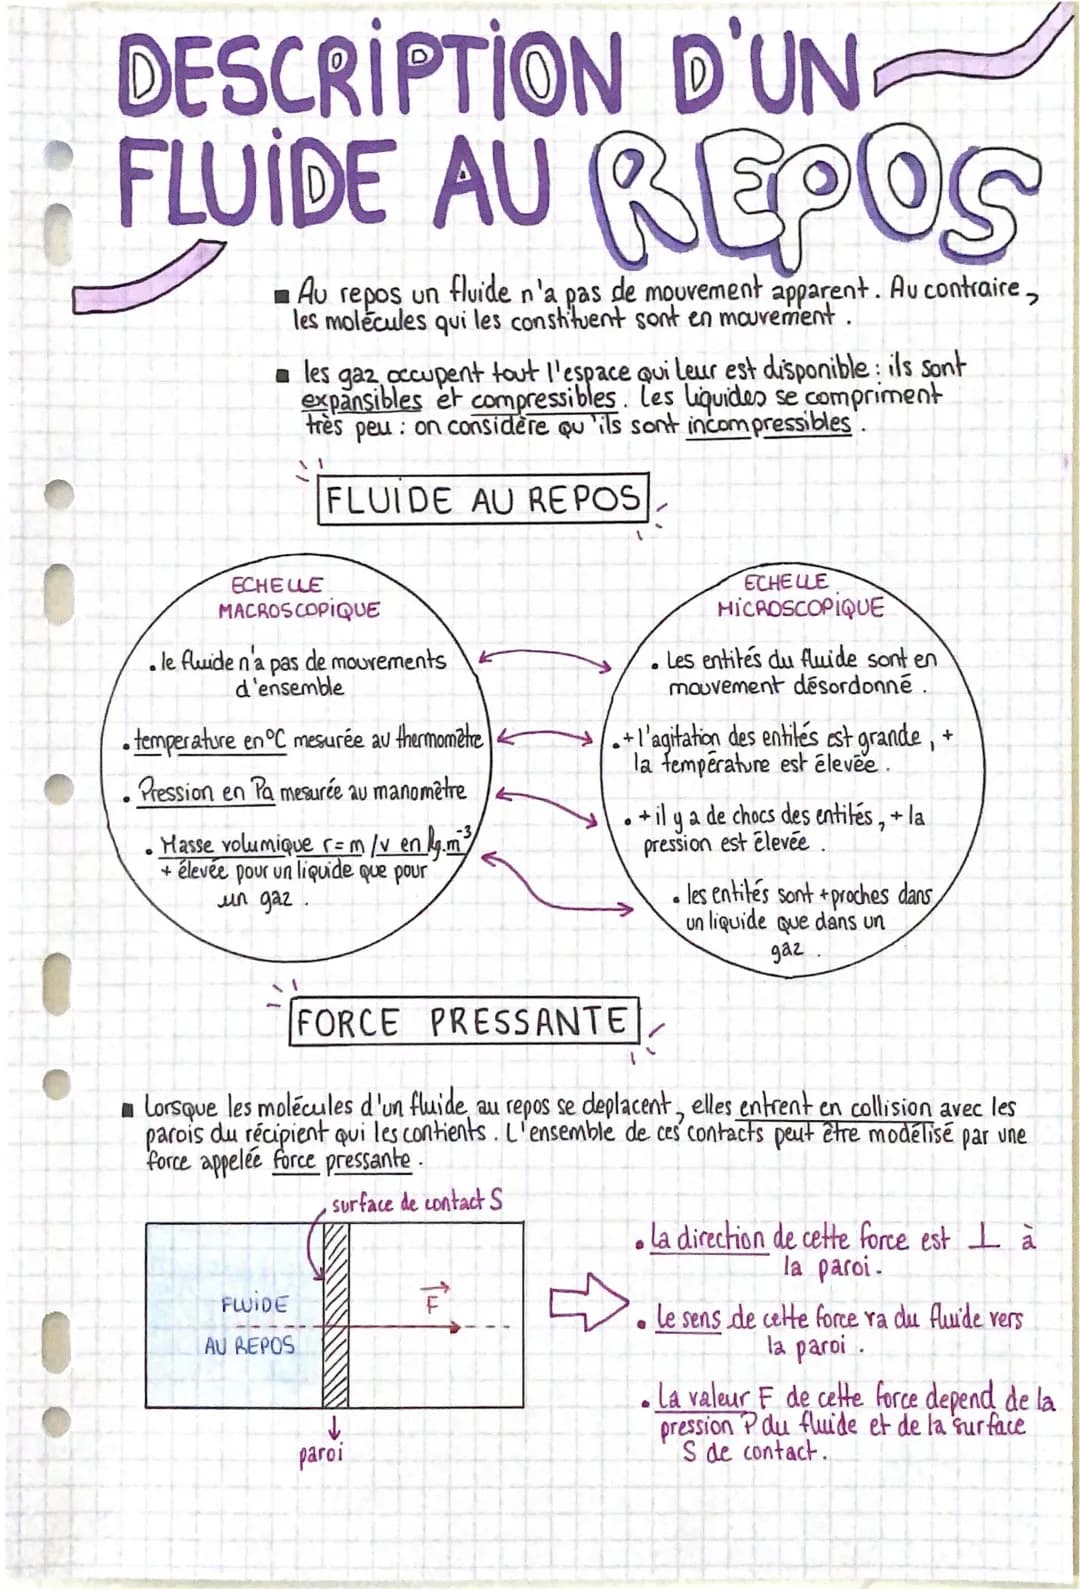 DESCRIPTION D'UN
FLUIDE AU REPOS
Au repos un fluide n'a pas de mouvement apparent. Au contraire,
les molécules qui les constituent sont en mouvement.
les gaz occupent tout l'espace qui leur est disponible : ils sont
expansibles et compressibles. Les liquides se compriment
très peu : on considère qu'ils sont incompressibles.
FLUIDE AU REPOS
ECHELLE
MACROSCOPIQUE
. le fluide n'a pas de mouvements
d'ensemble
. temperature en °C mesurée au thermomètre
. Pression en Pa mesurée au manomètre
. Masse volumique r = m/v en kg.m⁻³
+ élevée pour un liquide que pour
un gaz.
ECHELLE
MICROSCOPIQUE
. Les entités du fluide sont en
mouvement désordonné.
. + l'agitation des entités est grande, +
la température est élevée.
. + il y a de chocs des entités, + la
pression est élevée.
. les entités sont + proches dans
un liquide que dans un
gaz.
FORCE PRESSANTE
Lorsque les molécules d'un fluide au repos se deplacent, elles entrent en collision avec les
parois du récipient qui les contients. L'ensemble de ces contacts peut être modélisé par une
force appelée force pressante.
surface de contact S
FLUIDE
AU REPOS
F
paroi
. La direction de cette force est ⊥ à
la paroi.
. Le sens de cette force va du fluide vers
la paroi.
. La valeur F de cette force depend de la
pression P du fluide et de la surface
S de contact.